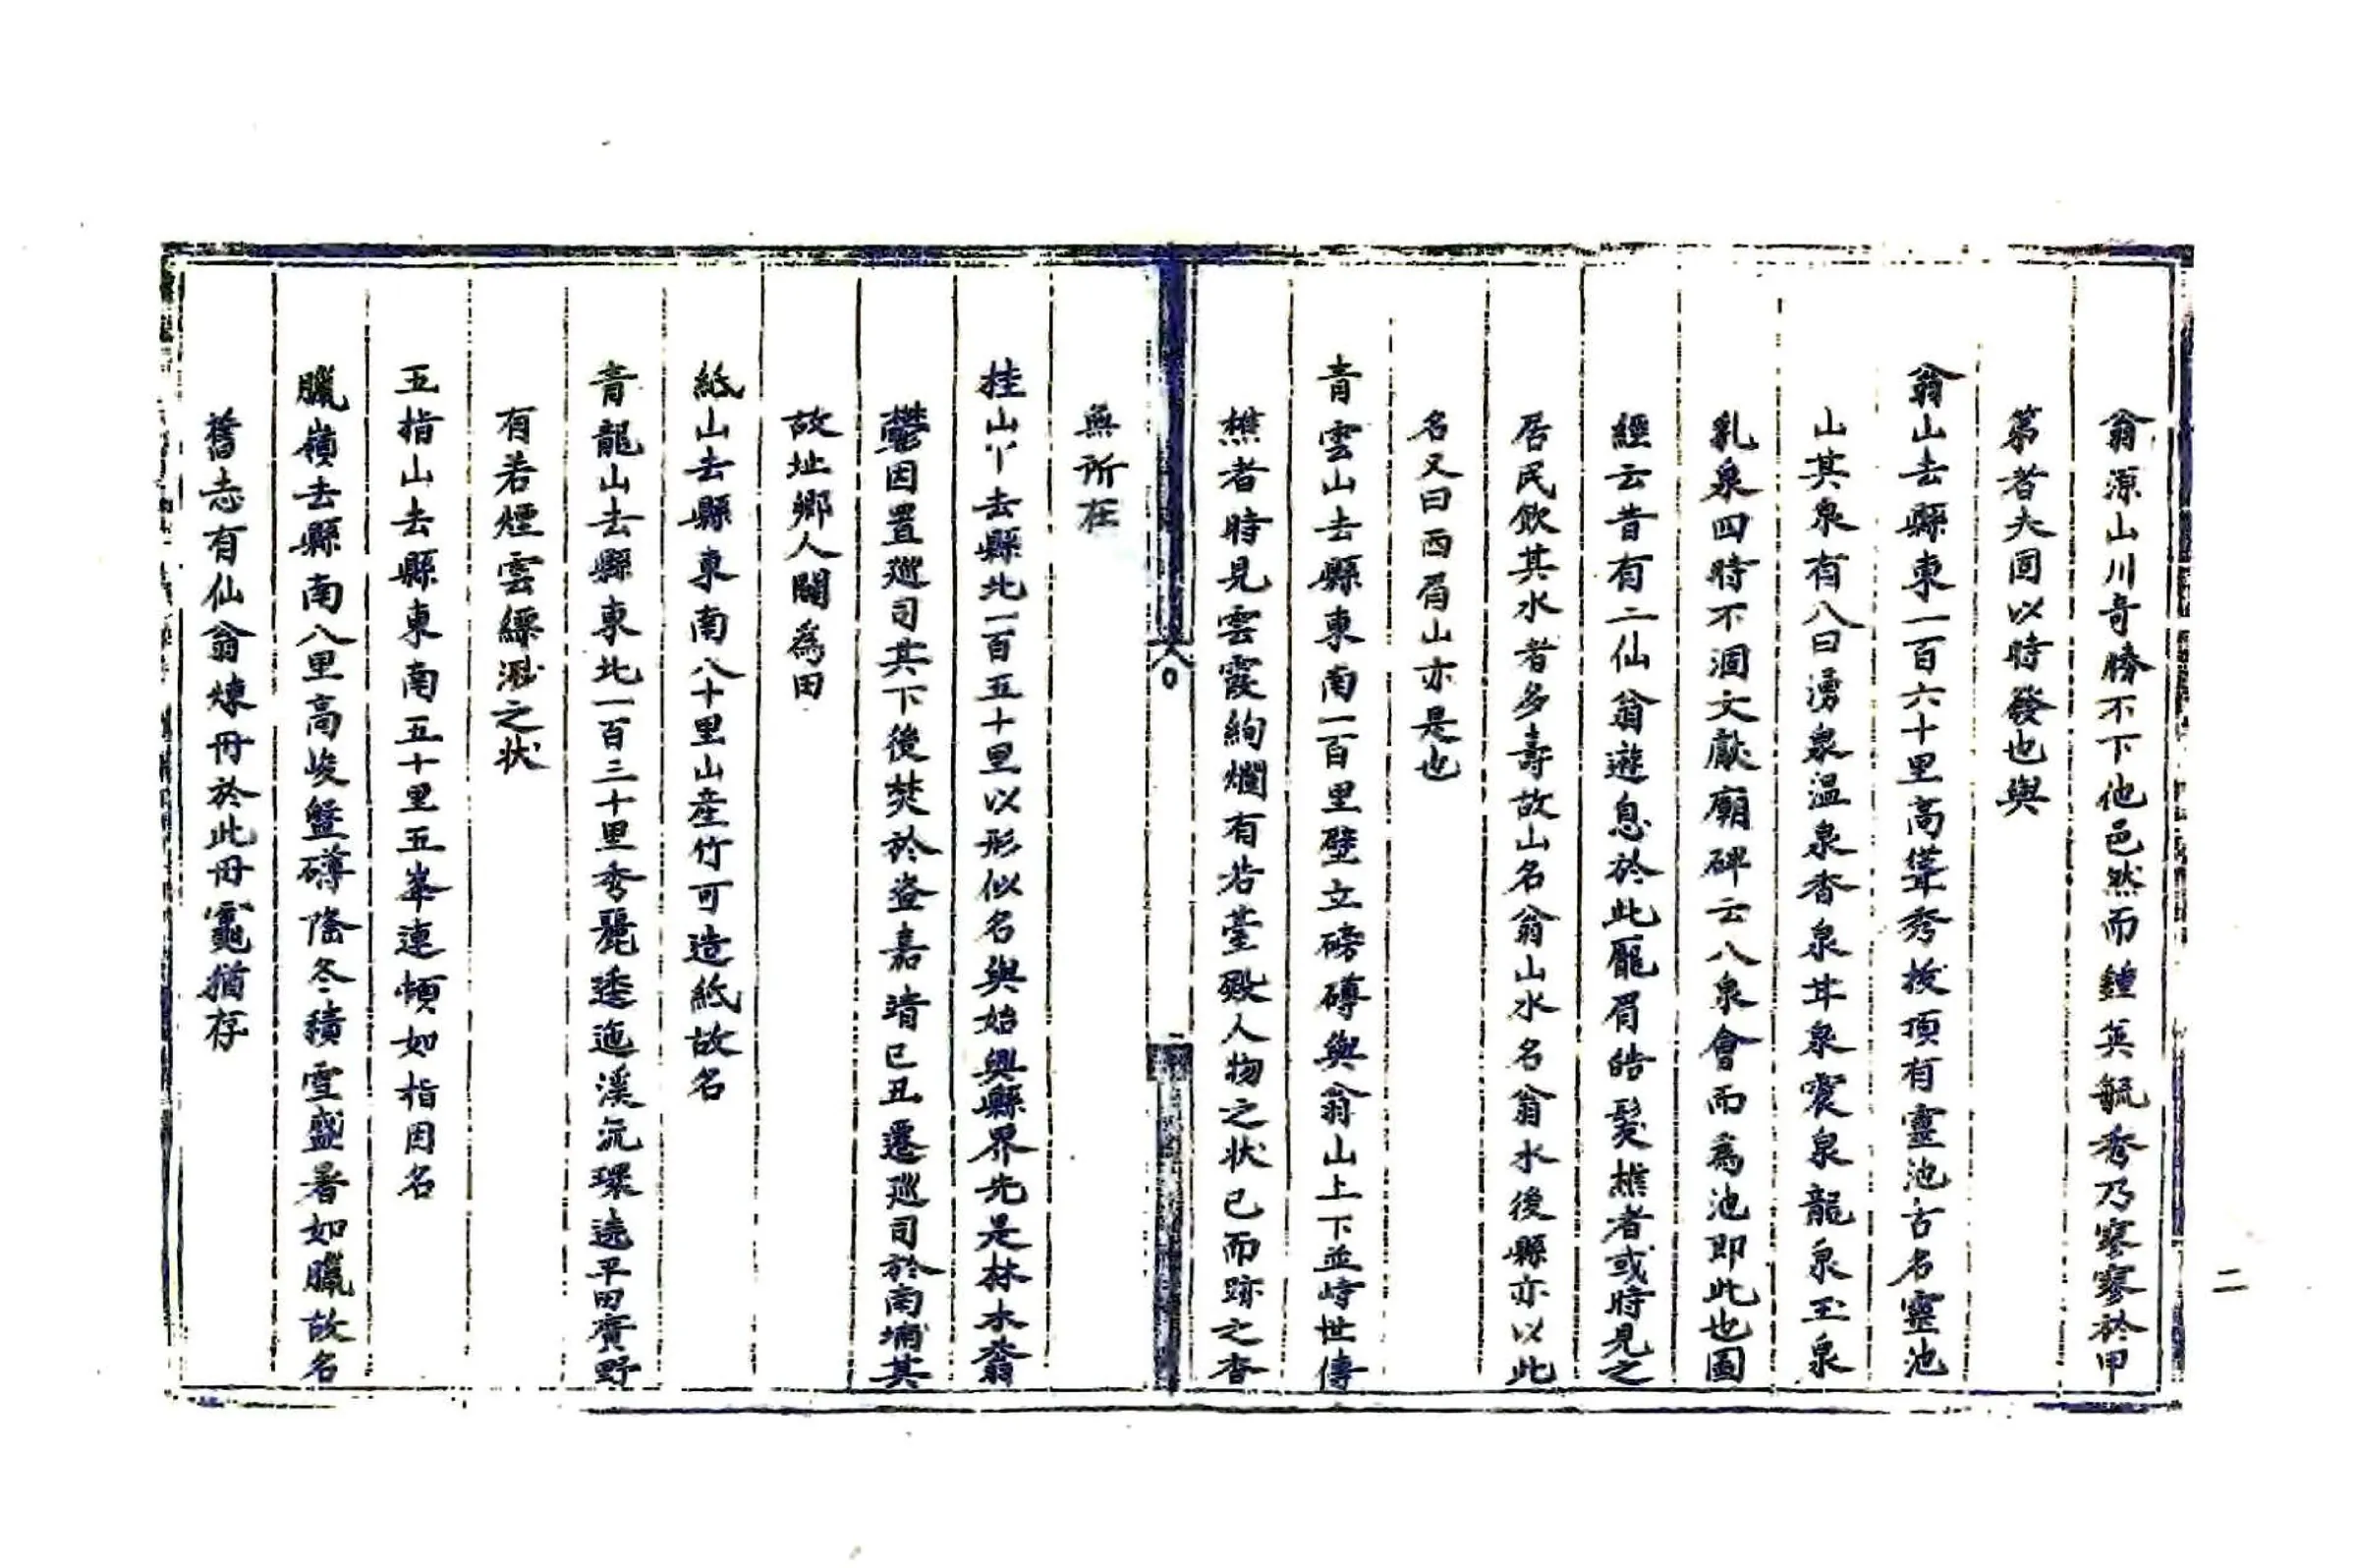 翁源山川奇勝不下他邑然而鍾英毓秀乃寥寥於甲
第者夫同以時發也與
翁山去縣東一百六十里高聳秀拔頂有靈池古名靈池
山其泉有八曰湧泉温泉香泉甘泉震泉龍泉玉泉
乳泉四時不涸文獻廟碑云八泉會而為池即此也圖
經云昔有二仙翁遊息於此厖眉皓髮樵者或時見之
居民飲其水者多壽故山名翁山水名翁水後縣亦以此
名又曰西眉山亦是也
青雲山去縣東南一百里壁立磅礡與翁山上下並峙世傳
樵者時見雲霞絢爛有若臺殿人物之状已而跡之杳
無所在
二
桂山丫去縣北一百五十里以形似名與始興縣界先是林木蓊
鬱因置巡司其下後焚於盗嘉靖已丑遷巡司於南埔其
故址鄉人闢為田
紙山去縣東南八十里山産竹可造紙故名
青龍山去縣東北一百三十里秀麗逶迤溪沅環遶平田廣野
有若煙雲縹渺之状
五指山去縣東南五十里五峯連頓如指因名
臘嶺去縣南八里高峻盤礡隆冬積雪盛暑如臘故名
舊志有仙翁煉丹於此丹竈猶存